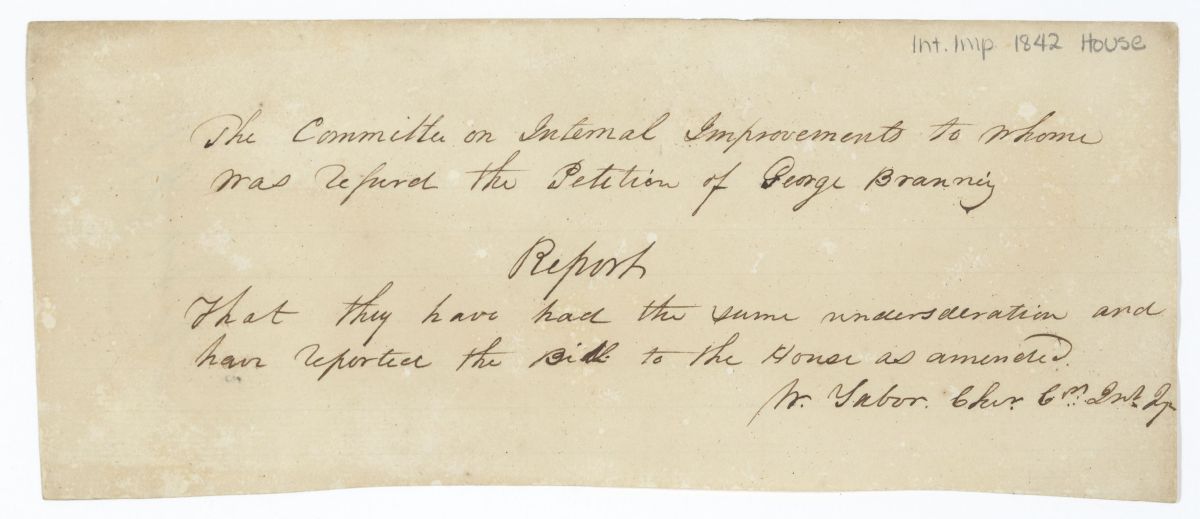 Int. Imp 1842 House
The Committee on Internal Improvements to whome
was refurd the Petition of George Branning
Report
That they have had the same undersderation and
have reported the Bill to the House as amended.
W. Tabor. Chr. Cm. Int. Ip